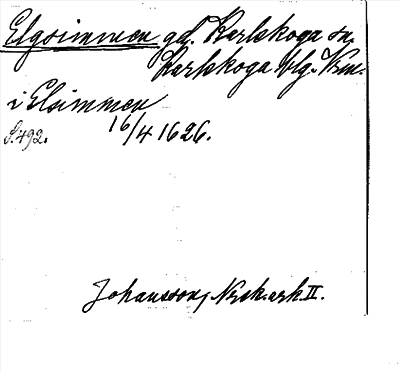 Elgsimmen gd. Karlskoga sn.
Karlskoga blg. Vrm.
i Elsimmen
S. 492. 16/4 1626.
Johansson, Nsk. ark. II.